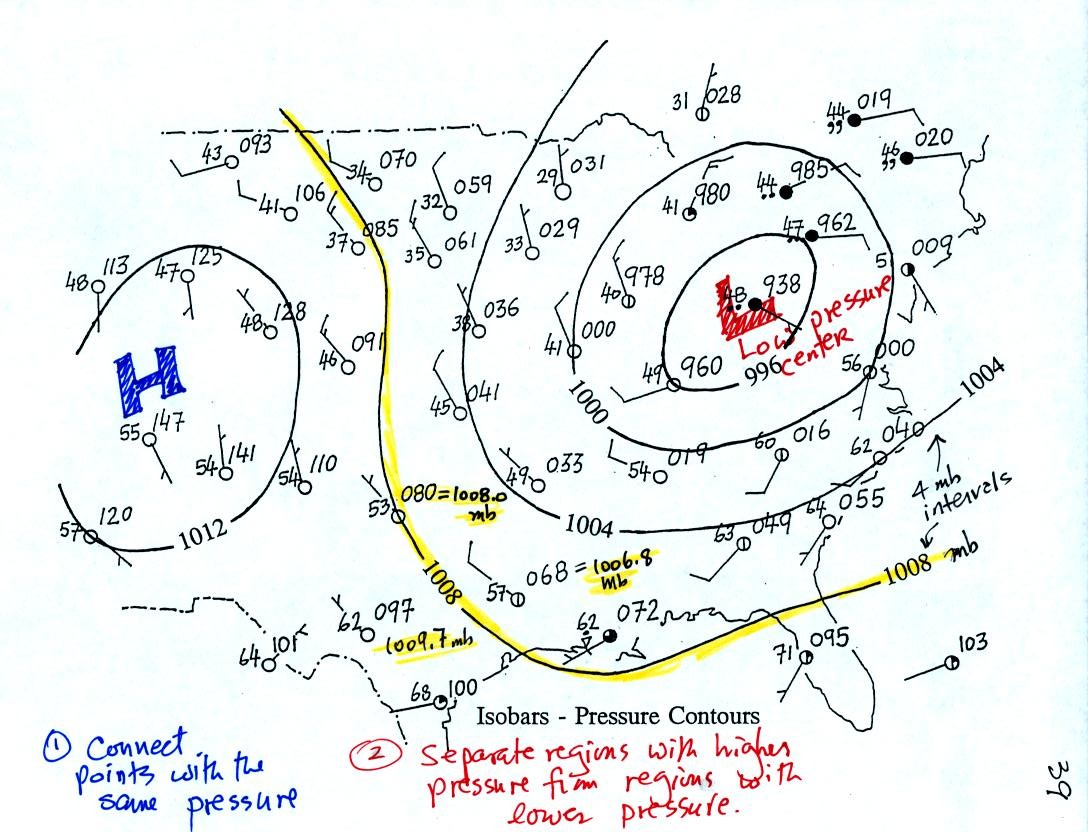 31 028
44 019
46 020
43 093
34 070
29 031
44 985
41 106
32 059
41 980
47 962
37 085
35 061
33 029
009
5
48 113
47 125
40 978
48 938
48 128
38 036
Low pressure
center
46 091
41 000
49 960
996
56 000
H
L
1000
1004
55 147
45 041
60 016
62 040
54 141
54 110
49 033
54 019
4 mb
intervals
53 080 = 1008.0
mb
64 055
57 120
1012
1004
63 049
1008 mb
068 = 1006.8
mb
57
1008
62 097
1009.7 mb
62 072
64 101
71 095
103
68 100
Isobars - Pressure Contours
① Connect
points with the
same pressure
② Separate regions with higher
pressure from regions with
lower pressure.
39